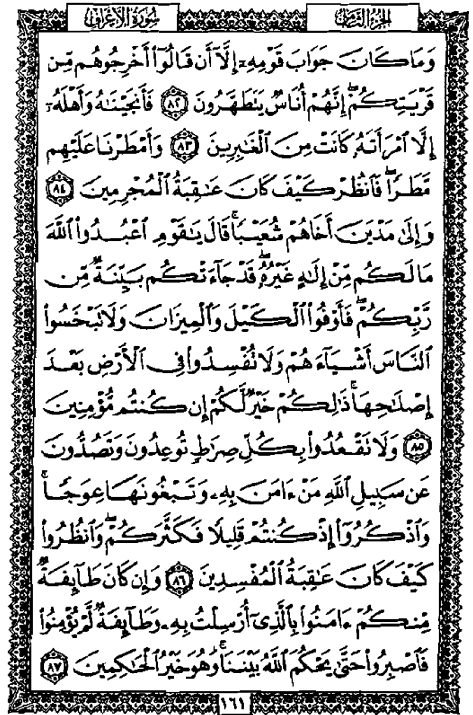 سورة الأعراف
الجزء الثامن
وَمَا كَانَ جَوَابَ قَوْمِهِۦٓ إِلَّآ أَن قَالُوٓا۟ أَخْرِجُوهُم مِّن
قَرْيَتِكُمْ ۖ إِنَّهُمْ أُنَاسٌ يَتَطَهَّرُونَ ٨٢ فَأَنجَيْنَٰهُ وَأَهْلَهُۥٓ
إِلَّا ٱمْرَأَتَهُۥ كَانَتْ مِنَ ٱلْغَٰبِرِينَ ٨٣ وَأَمْطَرْنَا عَلَيْهِم
مَّطَرًا ۖ فَٱنظُرْ كَيْفَ كَانَ عَٰقِبَةُ ٱلْمُجْرِمِينَ ٨٤
وَإِلَىٰ مَدْيَنَ أَخَاهُمْ شُعَيْبًا ۗ قَالَ يَٰقَوْمِ ٱعْبُدُوا۟ ٱللَّهَ
مَا لَكُم مِّنْ إِلَٰهٍ غَيْرُهُۥ ۖ قَدْ جَآءَتْكُم بَيِّنَةٌ مِّن
رَّبِّكُمْ ۖ فَأَوْفُوا۟ ٱلْكَيْلَ وَٱلْمِيزَانَ وَلَا تَبْخَسُوا۟
ٱلنَّاسَ أَشْيَآءَهُمْ وَلَا تُفْسِدُوا۟ فِى ٱلْأَرْضِ بَعْدَ
إِصْلَٰحِهَا ۚ ذَٰلِكُمْ خَيْرٌ لَّكُمْ إِن كُنتُم مُّؤْمِنِينَ
٨٥ وَلَا تَقْعُدُوا۟ بِكُلِّ صِرَٰطٍ تُوعِدُونَ وَتَصُدُّونَ
عَن سَبِيلِ ٱللَّهِ مَنْ ءَامَنَ بِهِۦ وَتَبْغُونَهَا عِوَجًا ۚ
وَٱذْكُرُوٓا۟ إِذْ كُنتُمْ قَلِيلًا فَكَثَّرَكُمْ ۖ وَٱنظُرُوا۟
كَيْفَ كَانَ عَٰقِبَةُ ٱلْمُفْسِدِينَ ٨٦ وَإِن كَانَ طَآئِفَةٌ
مِّنكُمْ ءَامَنُوا۟ بِٱلَّذِىٓ أُرْسِلْتُ بِهِۦ وَطَآئِفَةٌ لَّمْ يُؤْمِنُوا۟
فَٱصْبِرُوا۟ حَتَّىٰ يَحْكُمَ ٱللَّهُ بَيْنَنَا ۚ وَهُوَ خَيْرُ ٱلْحَٰكِمِينَ ٨٧
١٦١